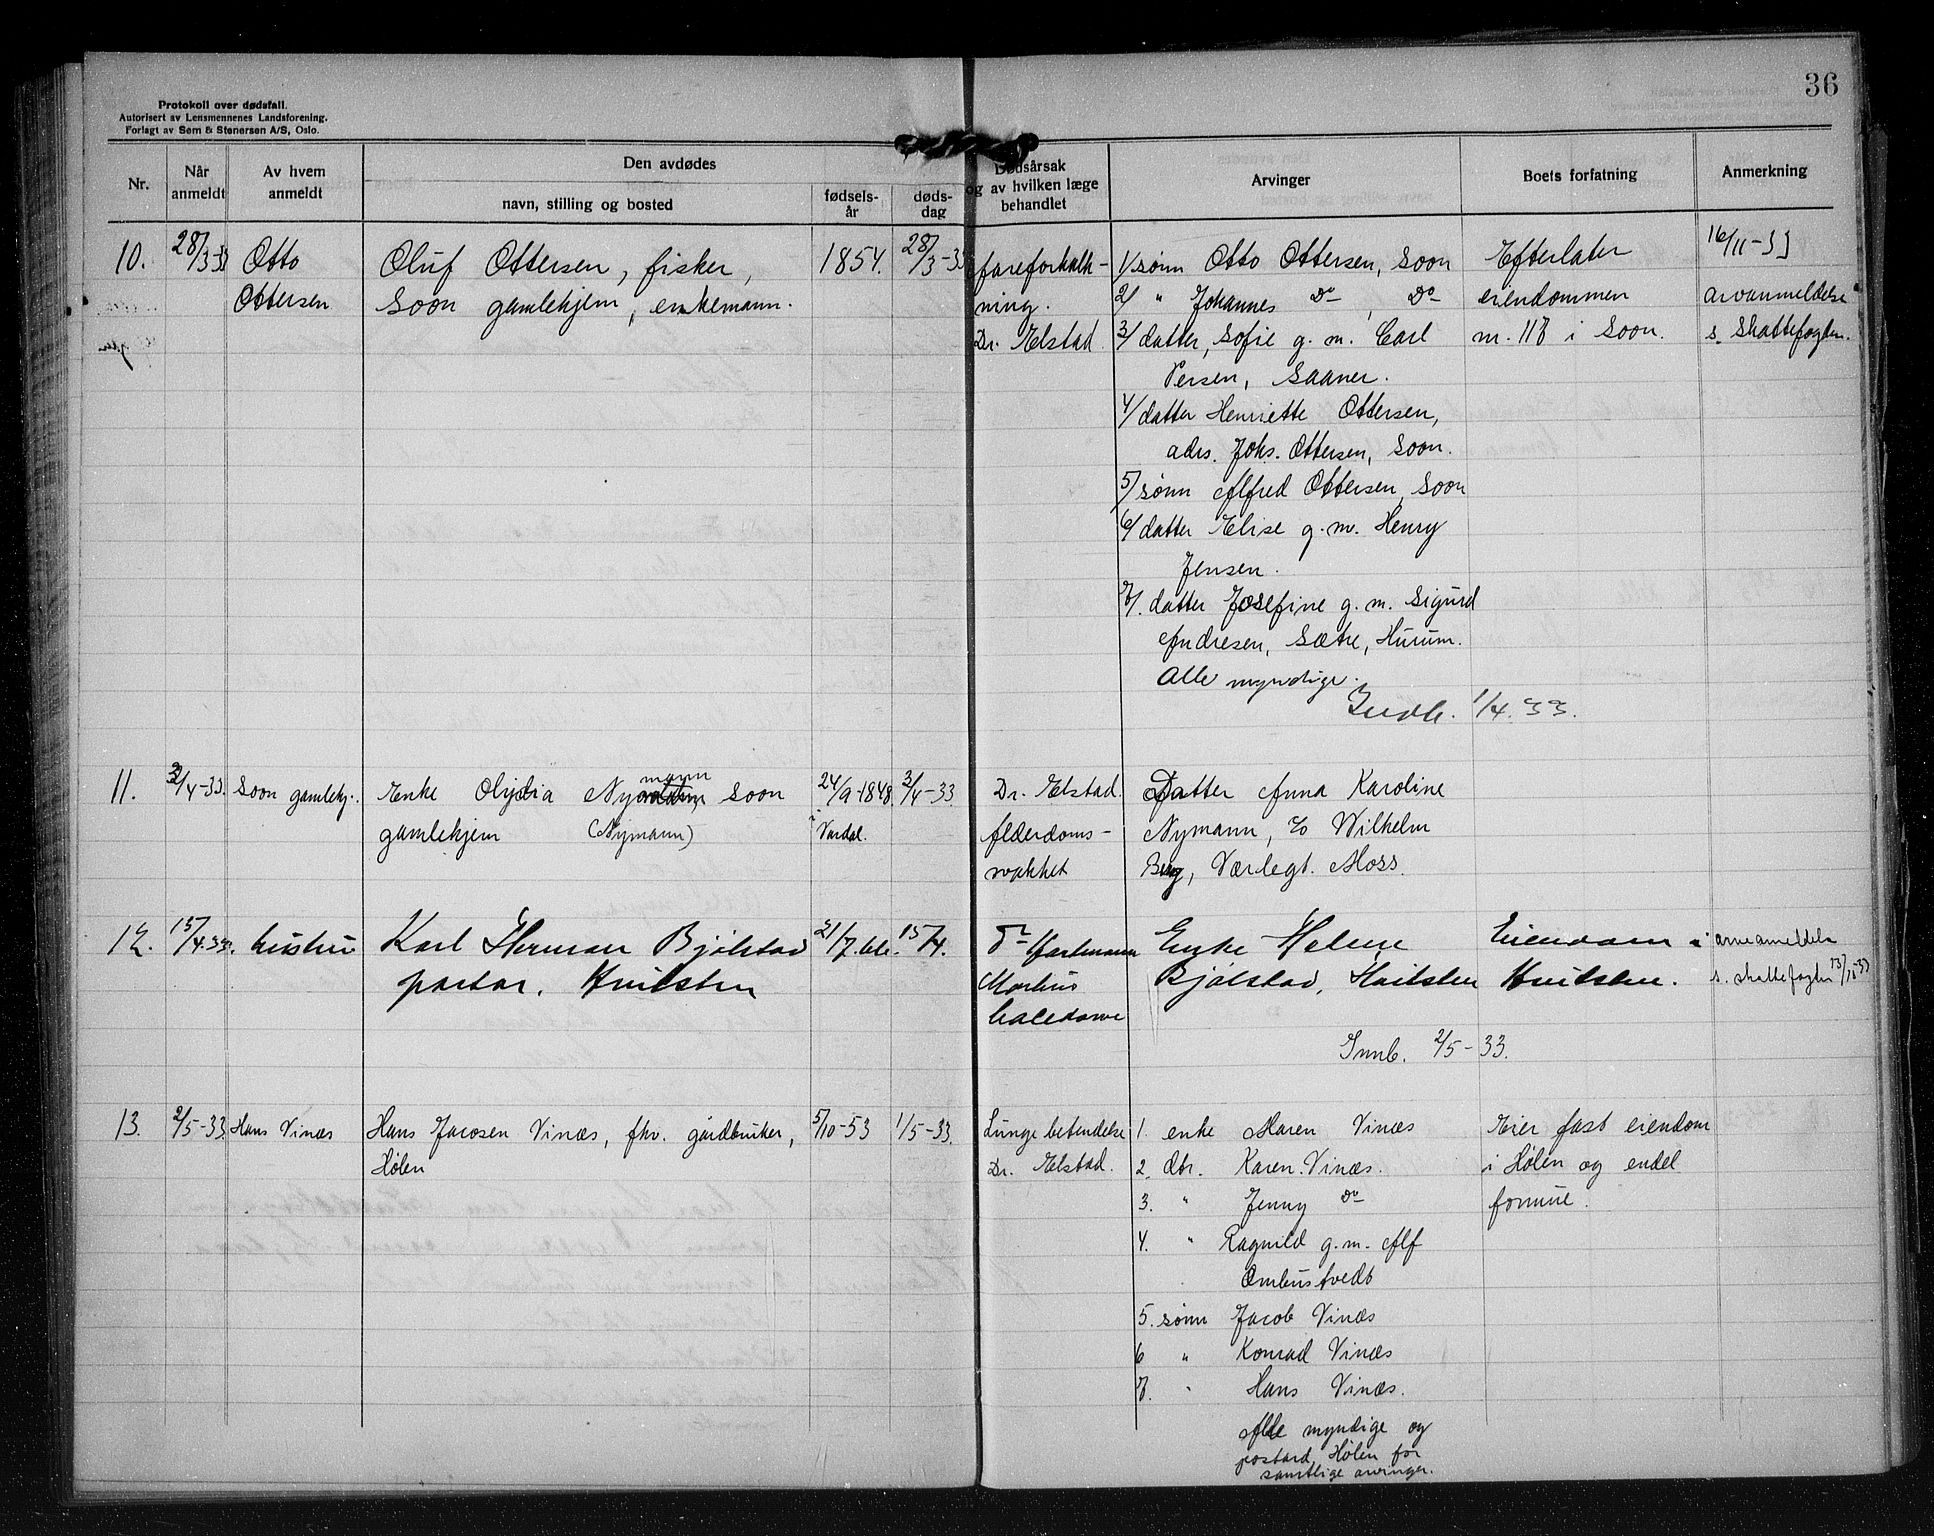 36
Protokoll over dødsfall.
Autorisert av Lensmennenes Landsforening.
Forlagt av Sem & Stenersen A/S, Oslo.
Nr.
Når anmeldt
Av hvem anmeldt
Den avdødes
navn, stilling og bosted
fødsels-år
døds-dag
Dødsårsak
og av hvilken læge
behandlet
Arvinger
Boets forfatning
Anmerkning
10.
28/3-33
Otto
Ottersen
Oluf Ottersen, fisker,
Soon gamlehjem, enkemann.
1854.
28/3-33
ning.
Dr. Elstad.
1/ sønn Otto Ottersen, Soon
2/ " Johannes Do , Do
3/ datter, Sofie g. m. Carl
Persen, Saaner.
4/ datter Henriette Ottersen,
adrs. Johs. Ottersen, Soon.
5/ sønn Alfred Ottersen, Soon
6/ datter Elise g. m. Henry
Jensen.
7/. datter Josefine g. m. Sigurd
Andresen, Sætre, Hurum.
Alle myndige.
1/4. 33.
Efterlater
eiendommen
m. 117 i Soon.
16/11-33
arvanmeldelse
s. Skattefogden.
11.
/4-33.
Soon gamlehj.
Enke Olydia Nymann Soon
gamlehjem (Nymann)
24/9-1848
i Vardal.
3/4-33.
Dr. Elstad.
Alderdoms-
svakhet
Datter Anna Karoline
Nymann, c/o Wilhelm
Berg, Værlegt. Moss.
12.
15/4.33.
hustru
Karl Herman Bjølstad
pastor. Hvitsten
21/7.
15/4.
Dr Hartmann
Morbus
Enke Helene
Bjølstad, Hvitsten
Innb. 2/5-33.
Eiendom i
Hvitsten.
s. skattefogden
13.
2/5-33.
Hans Vinæs
Hans Jacosen Vinæs, fhv. gårdbruker,
Hølen
5/10-53
1/5-33.
Lungebetendelse
Dr. Elstad.
1. enke Maren Vinæs
2. dtr. Karen Vinæs.
3. " Jenny Do
4. " Ragnild g. m. Alf
Ombustvedt
5. sønn Jacob Vinæs
6 " Konrad Vinæs
7. " Hans Vinæs.
Alle myndige og
postard. Hølen for
samtlige arvinger.
Eier fast eiendom
i Hølen og endel
formue.